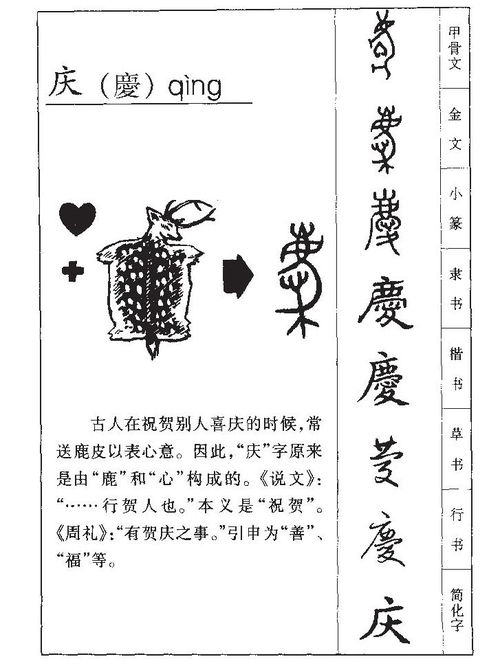 庆（慶）qìng
古人在祝贺别人喜庆的时候，常
送鹿皮以表心意。因此，“庆”字原来
是由“鹿”和“心”构成的。《说文》：
“……行贺人也。”本义是“祝贺”。
《周礼》：“有贺庆之事。”引申为“善”、
“福”等。
甲骨文
金文
小篆
慶 隶书
慶 楷书
草书
慶 行书
庆 简化字